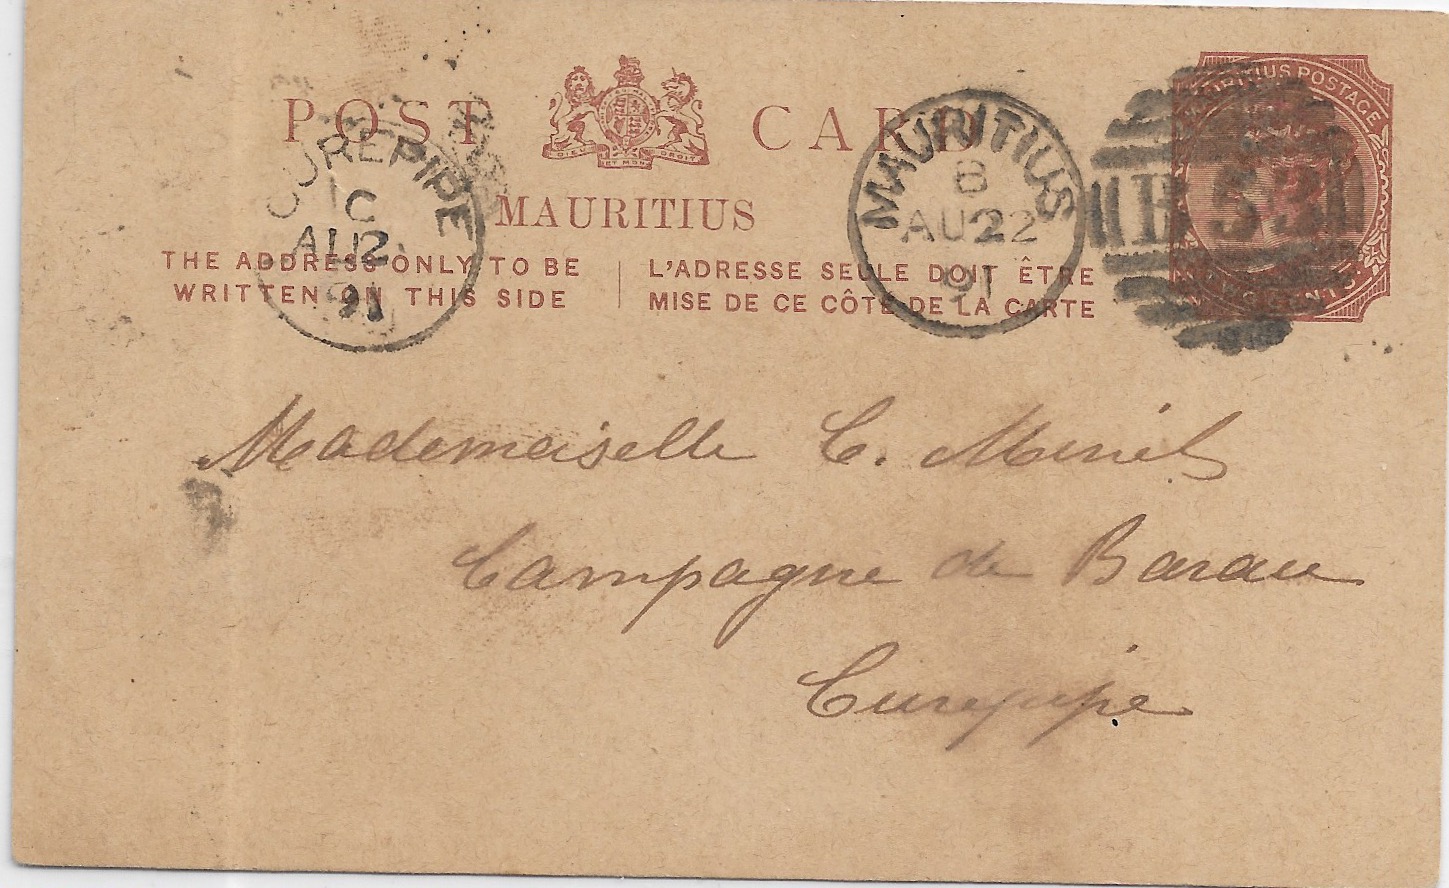 POST CARD
DIEU ET MON DROIT
MAURITIUS
THE ADDRESS ONLY TO BE
WRITTEN ON THIS SIDE
L'ADRESSE SEULE DOIT ÊTRE
MISE DE CE CÔTÉ DE LA CARTE
MAURITIUS POSTAGE
CUREPIPE
C
AU 2
91
MAURITIUS
B
AU 22
91
B 53
Mademoiselle C.
Campagne de
Curepipe